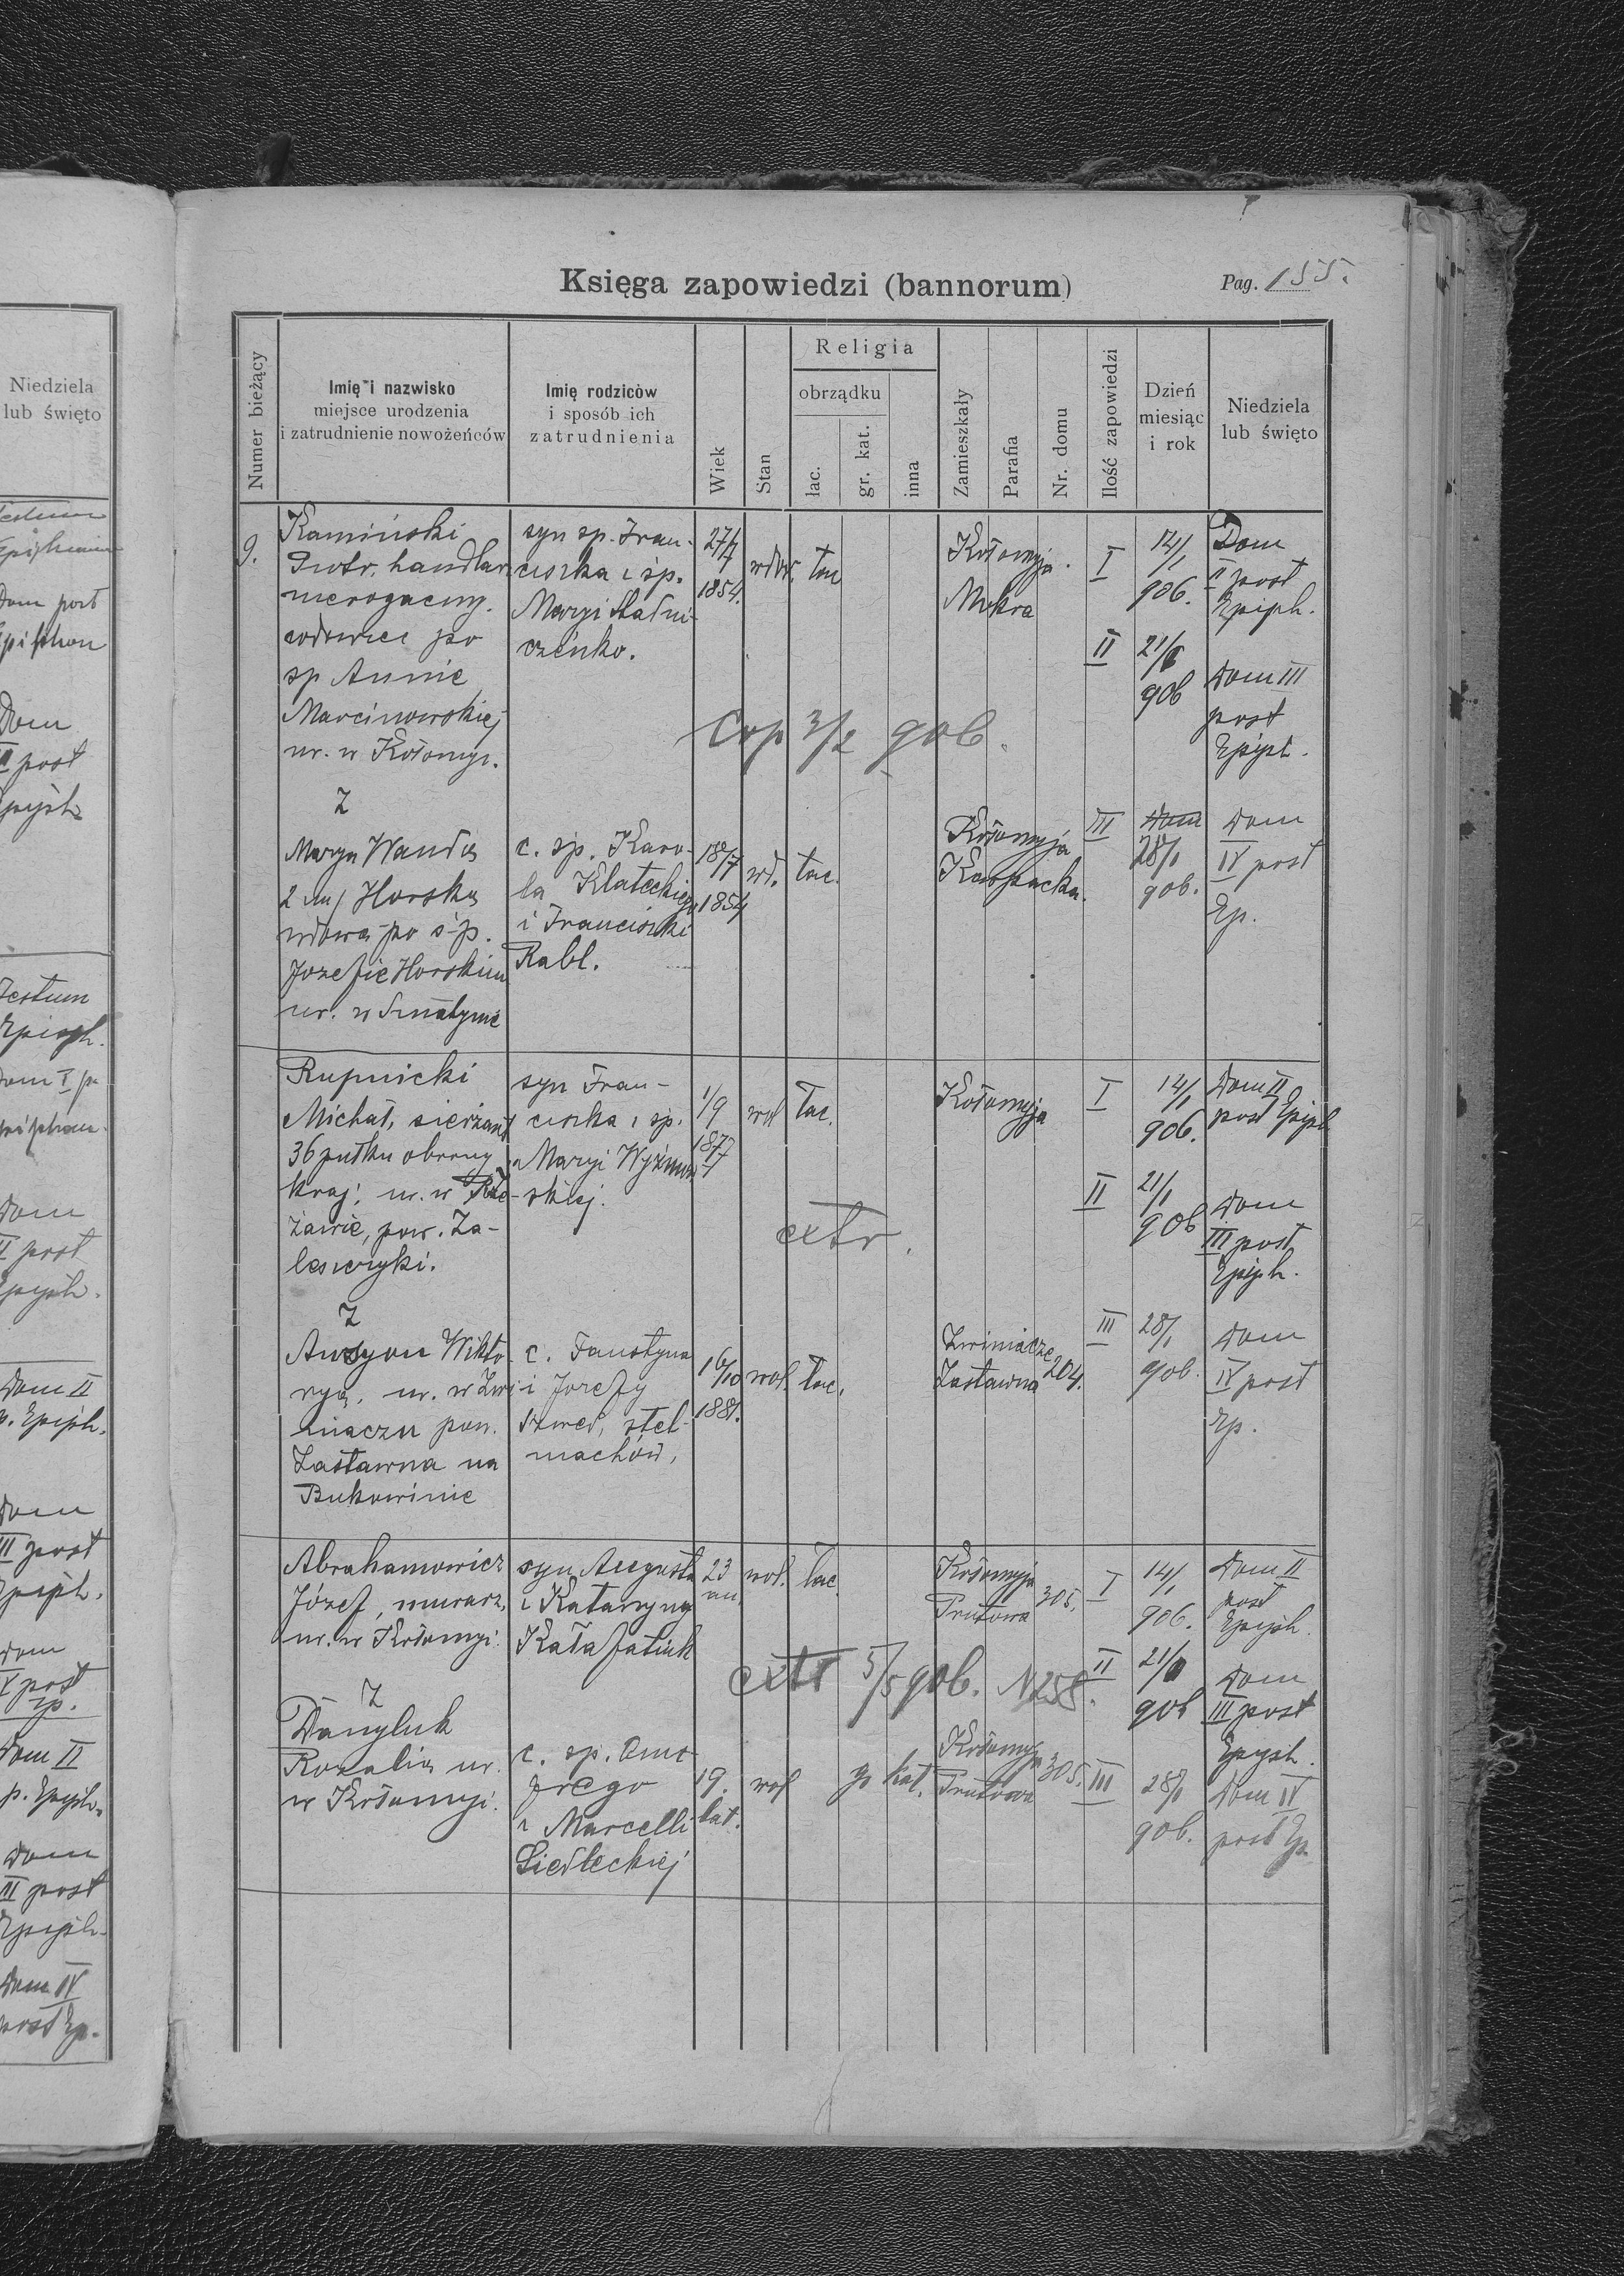 Księga zapowiedzi (bannorum)
Pag. 155.
Numer bieżący
Imię i nazwisko
miejsce urodzenia
i zatrudnienie nowożeńców
Imię rodziców
i sposób ich
zatrudnienia
Wiek
Stan
Religia
obrządku
łac.
gr. kat.
inna
Zamieszkały
Parafia
Nr. domu
Ilość zapowiedzi
Dzień
miesiąc
i rok
Niedziela
lub święto
9.
Kamiński
Piotr, handlarz
nierogacizny.
wdowiec po
sp Annie
Marcinowskiej
ur. w Kołomyi.
syn sp. Fran-
ciszka i sp.
Maryi
27/7
1854.
wdow.
łac
Kołomyja.
Mokra
I
14/1
906.
Dom
II post
Epiph.
II
21/1
906
Dom III
post
Epiph.
Cop 3/2 906.
Z
Marya Wanda
Horska
wdowa po ś.p.
Józefie Horskim
ur. w Śniatynie
c. sp. Karo-
la Klateckiego
i Franciszki
Rabl.
18/7
1854
wd.
łac.
Kołomyja
Karpacka.
III
Dom
28/1
906.
Dom
IV post
Ep.
Rupnicki
Michał, sierżant
36 pułku obrony
kraj. ur. w
żawie, pow. Za-
leszczyki.
syn Fran-
ciszka i sp.
Maryi
skiej.
1/9
1877
wol
łac.
Kołomyja
I
14/1
906.
Dom II
post Epiph
II
21/1
906
Dom
III post
Epiph.
extr.
Z
Wikto-
rya, ur. w Zwi-
niaczu pow.
Zastawna na
Bukowinie
c. Faustyna
i Józefy
Szwed, stel-
machów,
16/10
1881.
wol.
łac.
Zwiniacze
Zastawna
204.
III
28/1
906.
Dom
IV post
Ep.
Abrahamowicz
Józef, murarz,
ur. w Kołomyi.
syn Augusta
i Katarzyny
Kałafatiuk
23
an.
wol.
łac
Kołomyja
Prutowa
305.
I
14/1
906.
Dom II
post
Epiph.
extr 5/5 906. N 258.
II
21/1
906
Dom
III post
Epiph.
Z
Danyluk
Rozalia ur.
w Kołomyi.
c. sp. Ono-
frego
i Marcelli
Siedleckiej
19.
lat.
wol
gr kat.
Kołomyja
Prutowa
305.
III
28/1
906.
Dom IV
post Ep
Niedziela
lub święto
Festum
Epiphaniae
Dom post
Epiphan
Dom
II post
Epiph
Festum
Epiph.
Dom I p.
Epiphan.
Dom
II post
Epiph.
Dom II
p. Epiph.
Dom
III post
Epiph.
Dom
IV post
Ep.
Dom II
p. Epiph.
Dom
III post
Epiph.
Dom IV
post Ep.